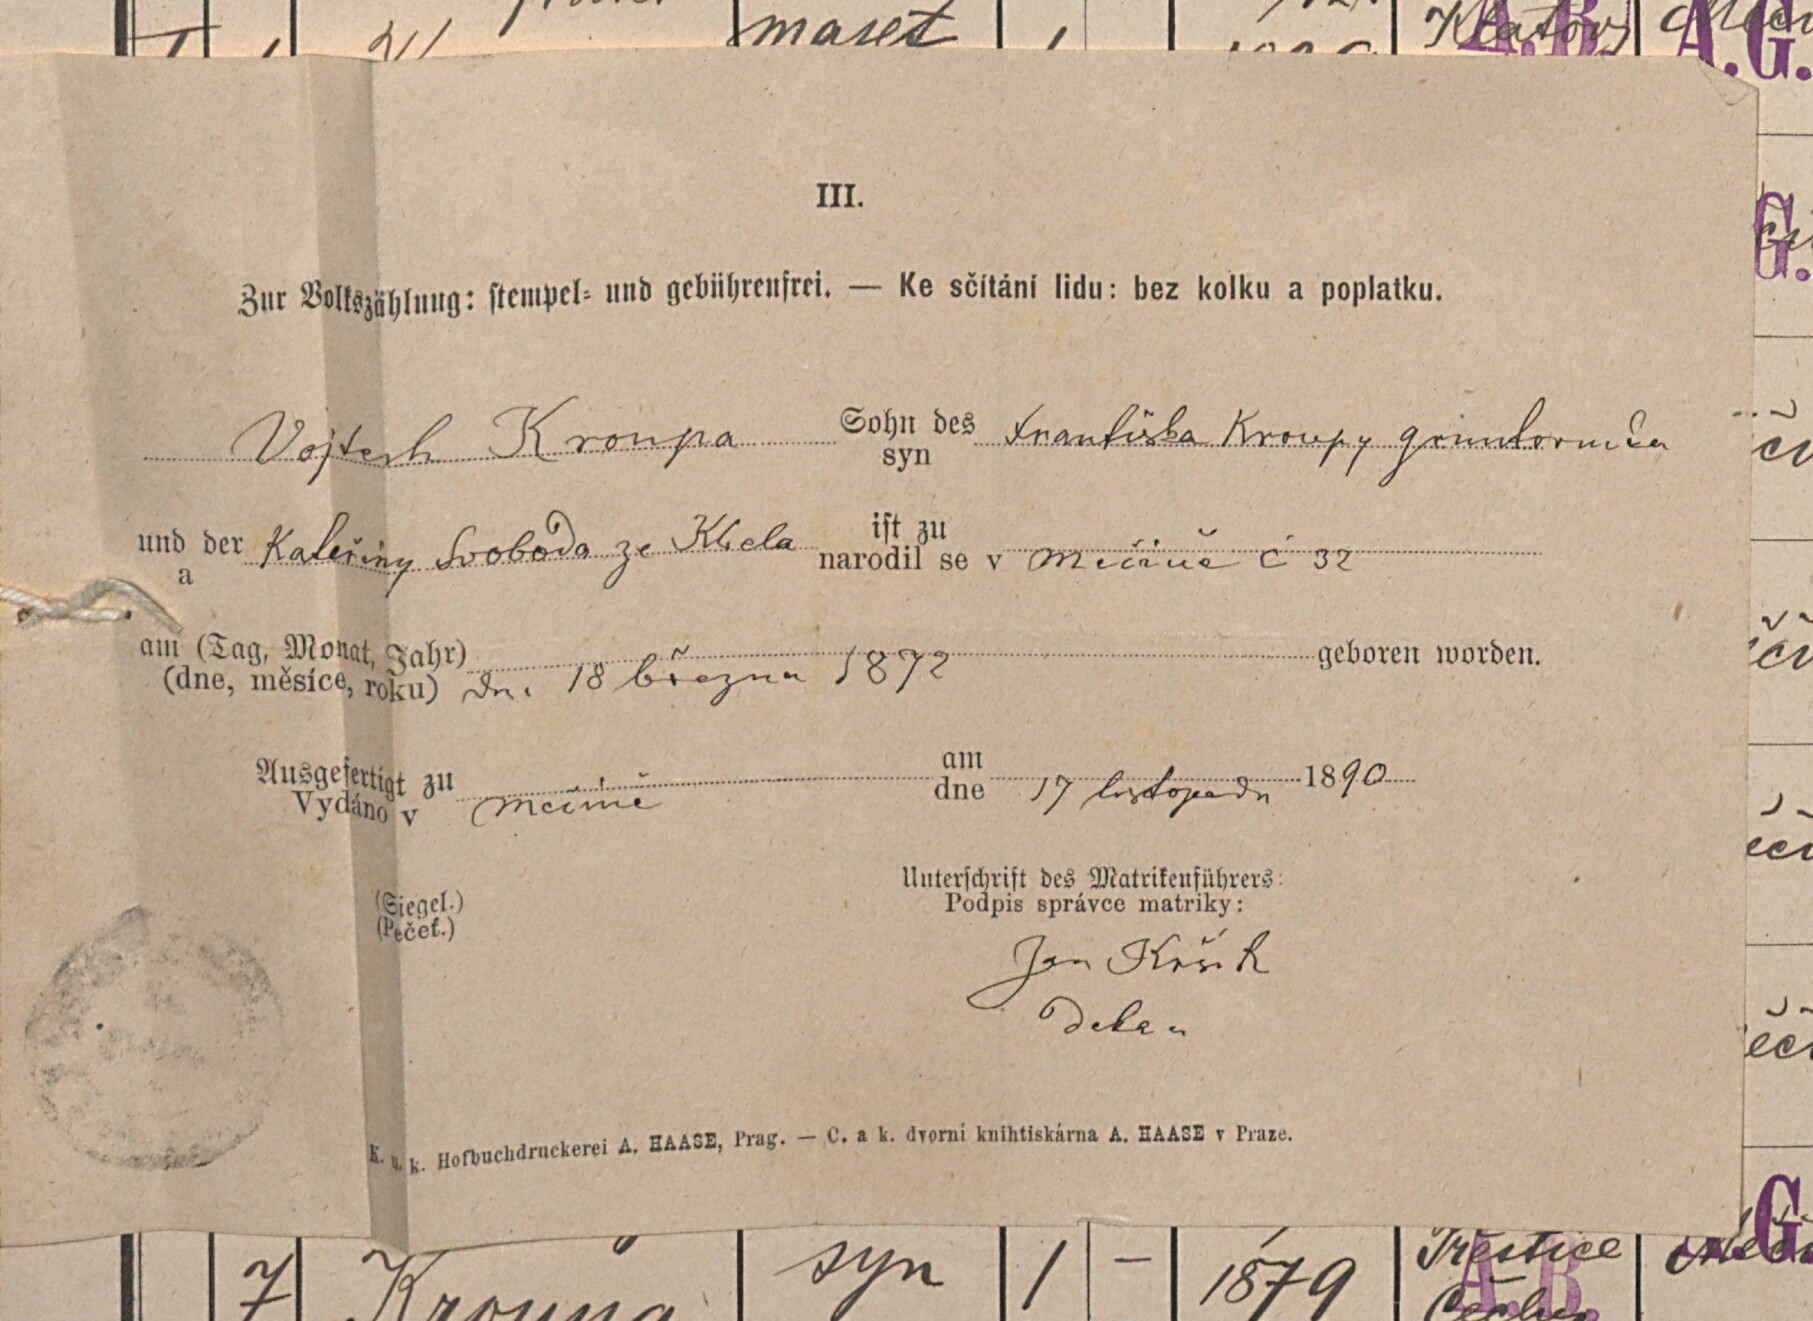 maset
Klatov
A.B.
A.G.
III.
Zur Volkszählung: stempel- und gebührenfrei. — Ke sčítání lidu: bez kolku a poplatku.
G.
Vojtech Kroupa Sohn des Františka Kroupy gruntovníka
syn
und der Kateřiny Svoboda ze Kbela ist zu
a narodil se v Měčíně č 32
am (Tag, Monat, Jahr) geboren worden.
(dne, měsíce, roku) dne 18 března 1872
Ausgefertigt zu am
Vydáno v Měčíně dne 17 listopadu 1890
Unterschrift des Matrikenführers:
(Siegel.) Podpis správce matriky:
(Pečeť.)
Jan Kršík
Děkan
K. u. k. Hofbuchdruckerei A. HAASE, Prag. — C. a k. dvorní knihtiskárna A. HAASE v Praze.
7 Kroupa syn 1 – 1879 Přestice
A.B.
A.G.
Čechy